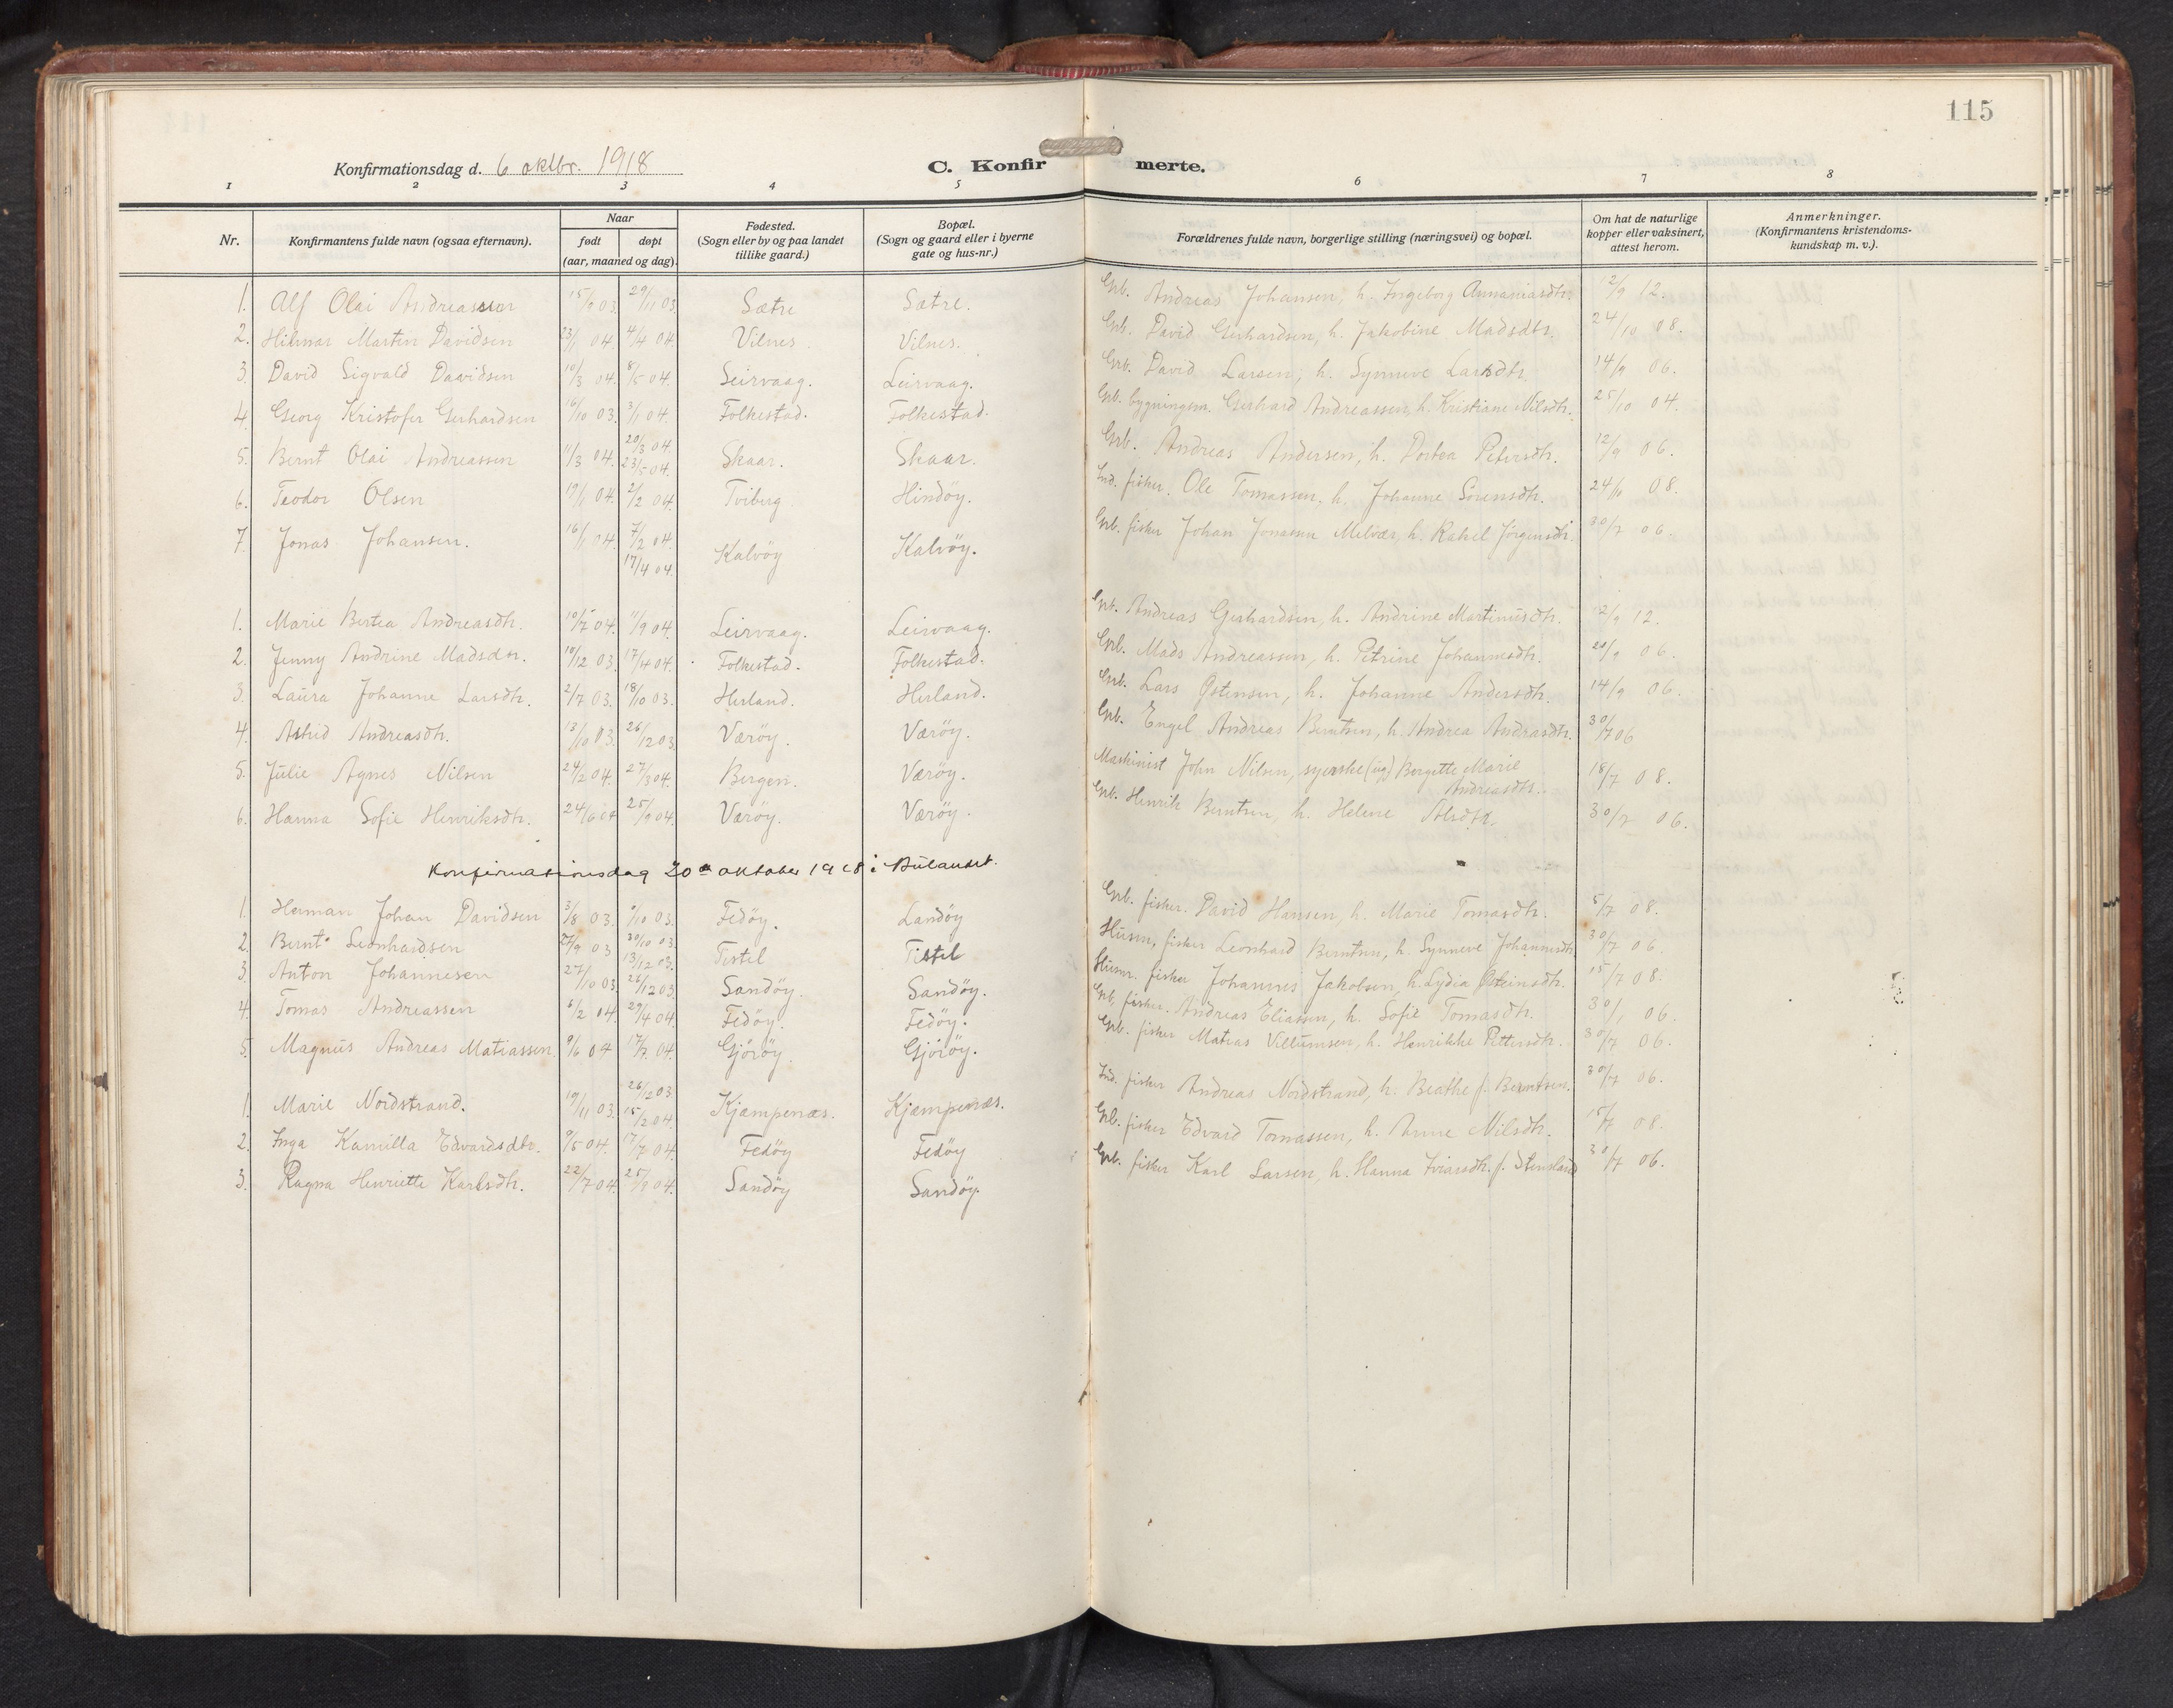 115
Konfirmationsdag d. 6 oktbr. 1918 C. Konfir merte.
1 2 3 4 5 6 7 8
Nr. Konfirmantens fulde navn (ogsaa efternavn). Naar født døpt (aar, maaned og dag). Fødested. (Sogn eller by og paa landet tillike gaard.) Bopæl. (Sogn og gaard eller i byerne gate og hus-nr.) Forældrenes fulde navn, borgerlige stilling (næringsvei) og bopæl. Om hat de naturlige kopper eller vaksinert, attest herom. Anmerkninger. (Konfirmantens kristendoms-kundskap m. v.).
1. Alf Olai Andreassen 15/9 03. 29/11 03. Sætre Sætre. Grb. Andreas Johansen, h. Ingeborg Annaniasdtr. 2/9 12.
2. Hilmar Martin Davidsen 23/1 04. 4/4 04. Vilnes. Vilnes. Grb. David Gerhardsen, h. Jakobine Madsdtr. 24/10 08.
3. David Sigvald Davidsen 10/3 04. 8/5 04. Leirvaag. Leirvaag. Grb. David Larsen, h. Synneve Larsdtr. 14/9 06.
4. Georg Kristofer Gerhardsen 16/10 03. 3/1 04. Folkestad. Folkestad. Grb. bygningsm. Gerhard Andreassen, h. Kristiane Nilsdtr. 25/10 04.
5. Bernt Olai Andreassen 11/3 04. 20/3 04. 23/5 04. Skaar. Skaar. Grb. Andreas Andersen, h. Dortea Petersdtr. 12/9 06.
6. Teodor Olsen 19/1 04. 2/2 04. Tviberg Hindöy. Ind. fisker. Ole Tomassen, h. Johanne Sörensdtr. 24/10 08.
7. Jonas Johansen. 16/1 04. 7/2 04. 17/4 04. Kalvöy Kalvöy. Grb. fisker Johan Jonassen Melvær, h. Rakel Jörgensdtr. 30/7 06.
1. Marie Bertea Andreasdtr. 10/7 04. 11/9 04. Leirvaag. Leirvaag. Grb. Andreas Gerhardsen, h. Andrine Martinusdtr. 12/9 12.
2. Jenny Andrine Madsdtr. 10/12 03. 17/4 04. Folkestad. Folkestad. Grb. Mads Andreassen, h. Petrine Johannesdtr. 20/9 06.
3. Laura Johanne Larsdtr. 2/7 03. 18/10 03. Herland. Herland. Grb. Lars Östensen, h. Johanne Andersdtr. 14/9 06.
4. Astrid Andreasdtr. 13/10 03. 26/12 03. Væröy. Væröy. Grb. Engel Andreas Berntsen, h. Andrea Andreasdtr. 30/7 06
5. Julie Agnes Nilsen 24/2 04. 27/3 04. Bergen. Væröy. Maskinist John Nilsen, syerske (ug) Borgette Marie Andreasdtr. 18/7 08.
6. Hanna Sofie Henriksdtr. 24/6 04 25/9 04. Væröy. Væröy. Grb. Henrik Berntsen, h. Helene Olsdtr. 30/7 06.
Konfirmationsdag 20de oktober 1918 i Bulandet.
1. Herman Johan Davidsen 3/8 03. /10 03. Fedöy. Landöy Grb. fisker. David Hansen, h. Marie Tomasdtr. 5/7 08.
2. Bernt Leonhardsen 27/9 03 30/10 03. 13/12 03. Tistel Tistel Husm. fisker Leonhard Berntsen, h. Synneve Johannesdtr. 30/7 06.
3. Anton Johannesen 27/10 03 26/12 03. Sandöy. Sandöy. Husm. fisker Johannes Jakobsen, h. Lydia Osteinsdtr. 15/7 08.
4. Tomas Andreassen 6/2 04. 29/4 04. Fedöy. Fedöy. Grb. fisker. Andreas Eliassen, h. Sofie Tomasdtr. 30/7 06.
5. Magnus Andreas Matiassen 9/6 04 17/7 04. Gjöröy. Gjöröy. Grb. fisker Matias Villumsen, h. Henrikke Pettersdtr. 30/7 06.
1. Marie Nordstrand. 19/11 03. 26/12 03 15/2 04. Kjæmpenæs. Kjæmpenæs. Ind. fisker Andreas Nordstrand, h. Beathe f. Berntsen. 30/7 06.
2. Inga Kamilla Edvardsdtr. 9/5 04. 17/7 04. Fedöy Fedöy Grb. fisker Edvard Tomassen, h. Anne Nilsdtr. 15/7 08.
3. Ragna Henriette Karlsdtr. 22/7 04. 25/9 04. Sandöy Sandöy. Grb. fisker Karl Larsen, h. Hanna f. 30/7 06.